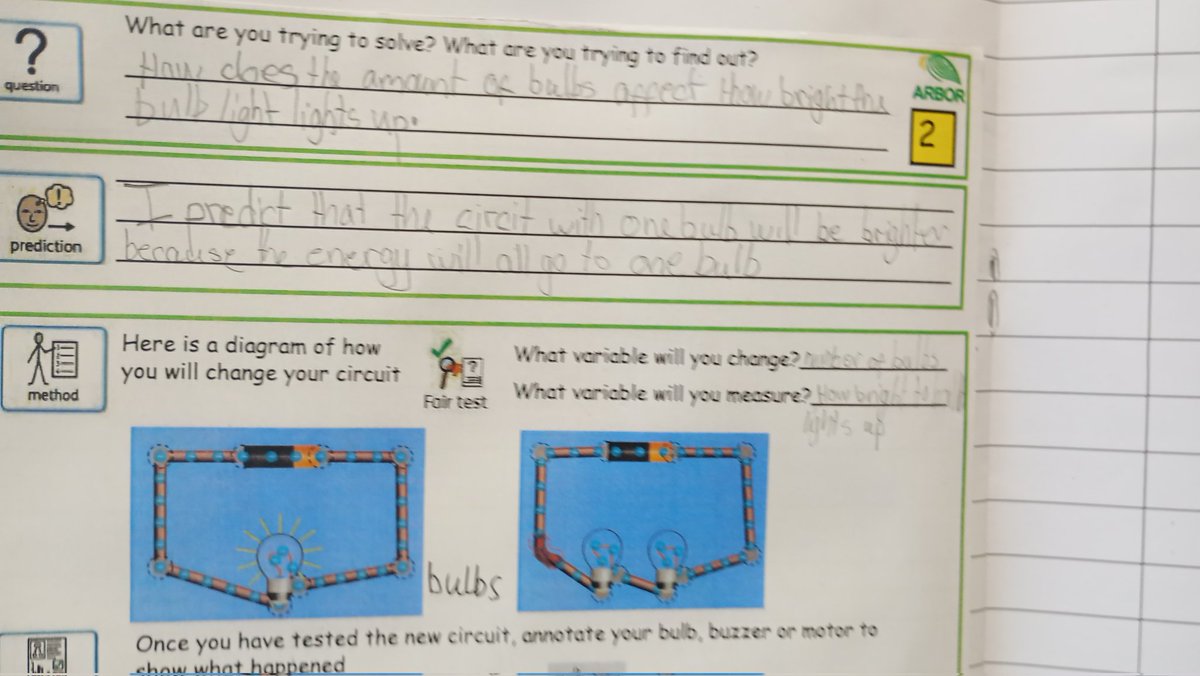 What are you trying to solve? What are you trying to find out?
How does the amount of bulbs affect how bright the
bulb light lights up.
question
ARBOR
2
I predict that the circit with one bulb will be brighter
because the energy will all go to one bulb
prediction
Here is a diagram of how
you will change your circuit
method
Fair test
What variable will you change? number of bulbs
What variable will you measure? How bright
lights up
bulbs
Once you have tested the new circuit, annotate your bulb, buzzer or motor to
show what happened